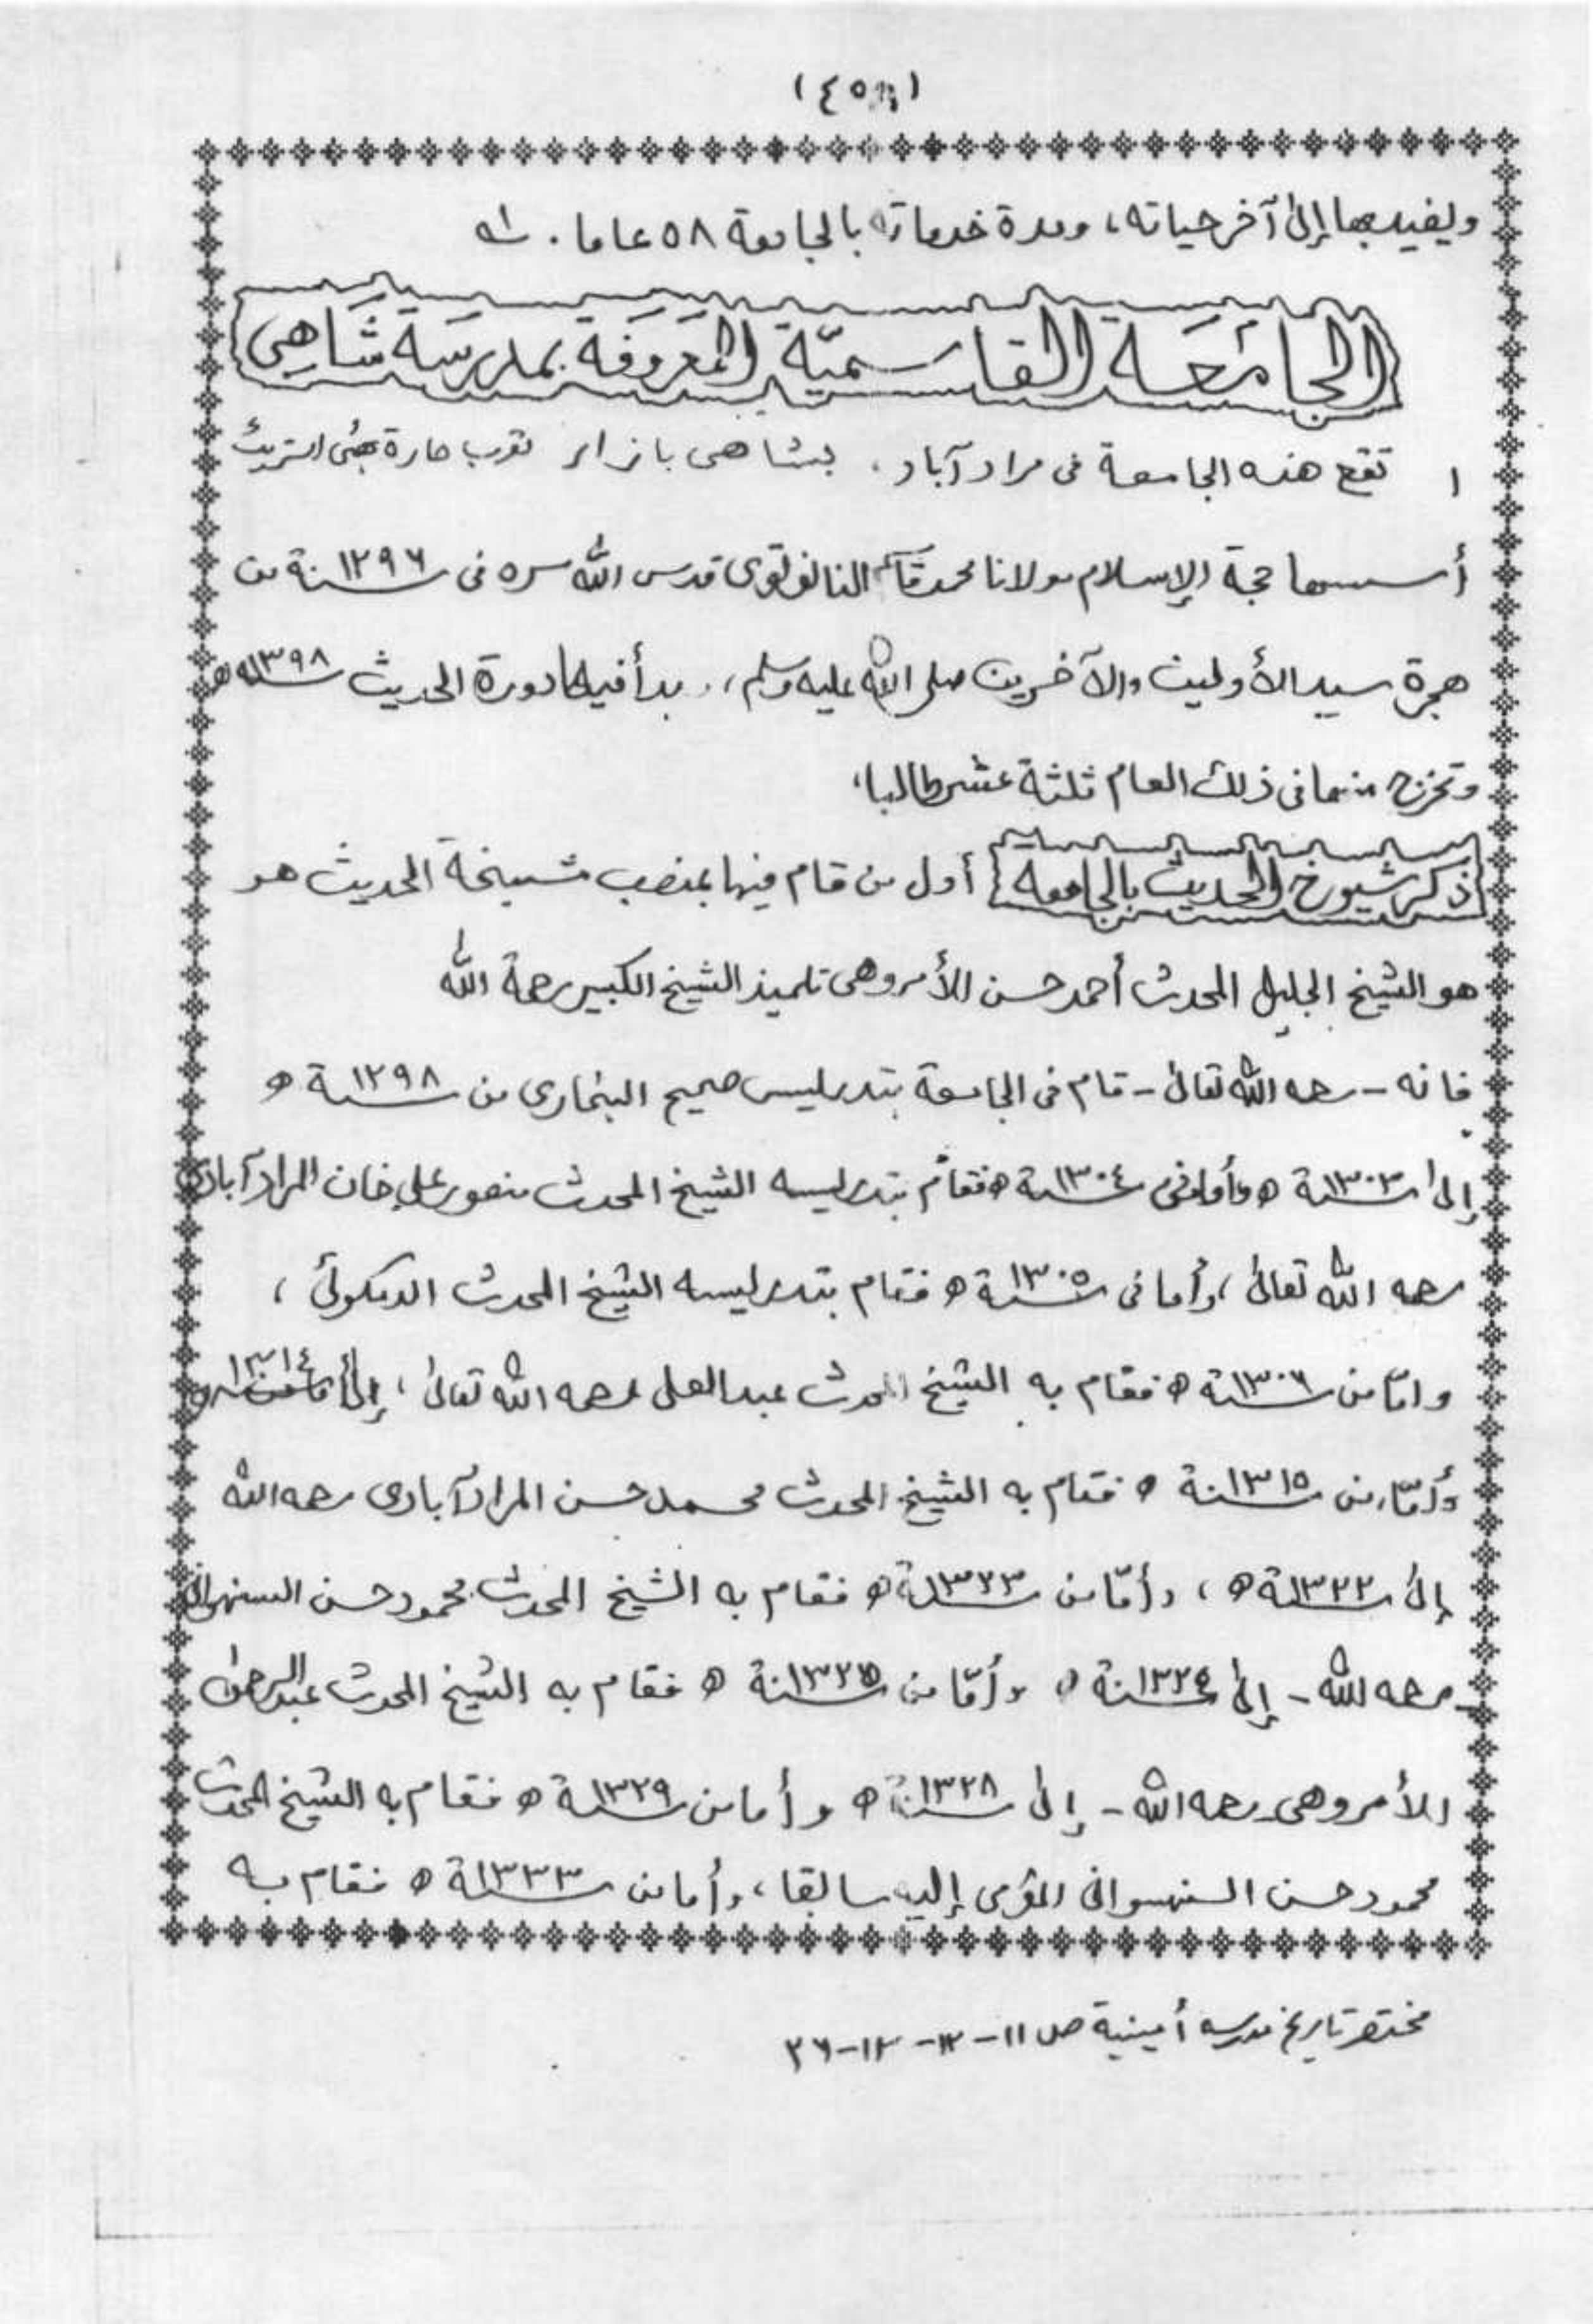 ويفيد بها إلى آخر حياته، ومدة خدماته بالجامعة ٥٨ عاما. له
الجامعة القاسمية المعروفة بمدرسة شاهي
١ تقع هذه الجامعة فى مراد آباد، بشاهى بازار بقرب حارة
أسسها حجة الإسلام مولانا محمد قاسم النانوتوى قدس الله سره فى ١٢٩٦ سنة من
هجرة سيد الأولين والآخرين صلى الله عليه وسلم، بدأ فيها دورة الحديث ١٣٩٨ سنه ھ
وتخرج منها فى ذلك العام ثلثة عشر طالبا،
ذكر شيوخ الحديث بالجامعه أول من قام فيها بمنصب مشيخة الحديث هو
هو الشيخ الجليل المحدث أحمد حسن الأمروهى تلميذ الشيخ الكبير رحمة الله
فانه - رحمه الله تعالى - قام فى الجامعة بتدريس صحيح البخارى من ١٢٩٨ سنة ھ
إلى ١٣٠٣ سنة ھ وأما فى ١٣٠٤ سنة ھ فقام بتدريسه الشيخ المحدث منصور على خان المرادآبادى
رحمه الله تعالى، وأما فى ١٣٠٥ سنة ھ فقام بتدريسه الشيخ المحدث
وامّا من ١٣٠٦ سنة ھ فقام به الشيخ المحدث عبد العلى رحمه الله تعالى، إلى ١٣١٤
وأمّا من ١٣١٥ سنة ھ فقام به الشيخ المحدث محمد حسن المرادآبادى رحمه الله
إلى ١٣٢٢ سنة ھ، وأمّا من ١٣٢٣ سنة ھ فقام به الشيخ المحدث محمود حسن السنهوانى
- رحمه الله - إلى ١٣٢٤ سنة ھ وأمّا من ١٣٢٥ سنة ھ فقام به الشيخ المحدث عبد الرحمن
الأمروهى رحمه الله - إلى ١٣٢٨ سنة ھ وأما من ١٣٢٩ سنة ھ فقام به الشيخ المحدث
محمود حسن السنهسوانى المؤمى إليه سابقا، وأما من ١٣٣٣ سنة ھ فقام به
مختصر تاريخ مدرسه أمينية ص ١١-١٢-١٣-٢٦